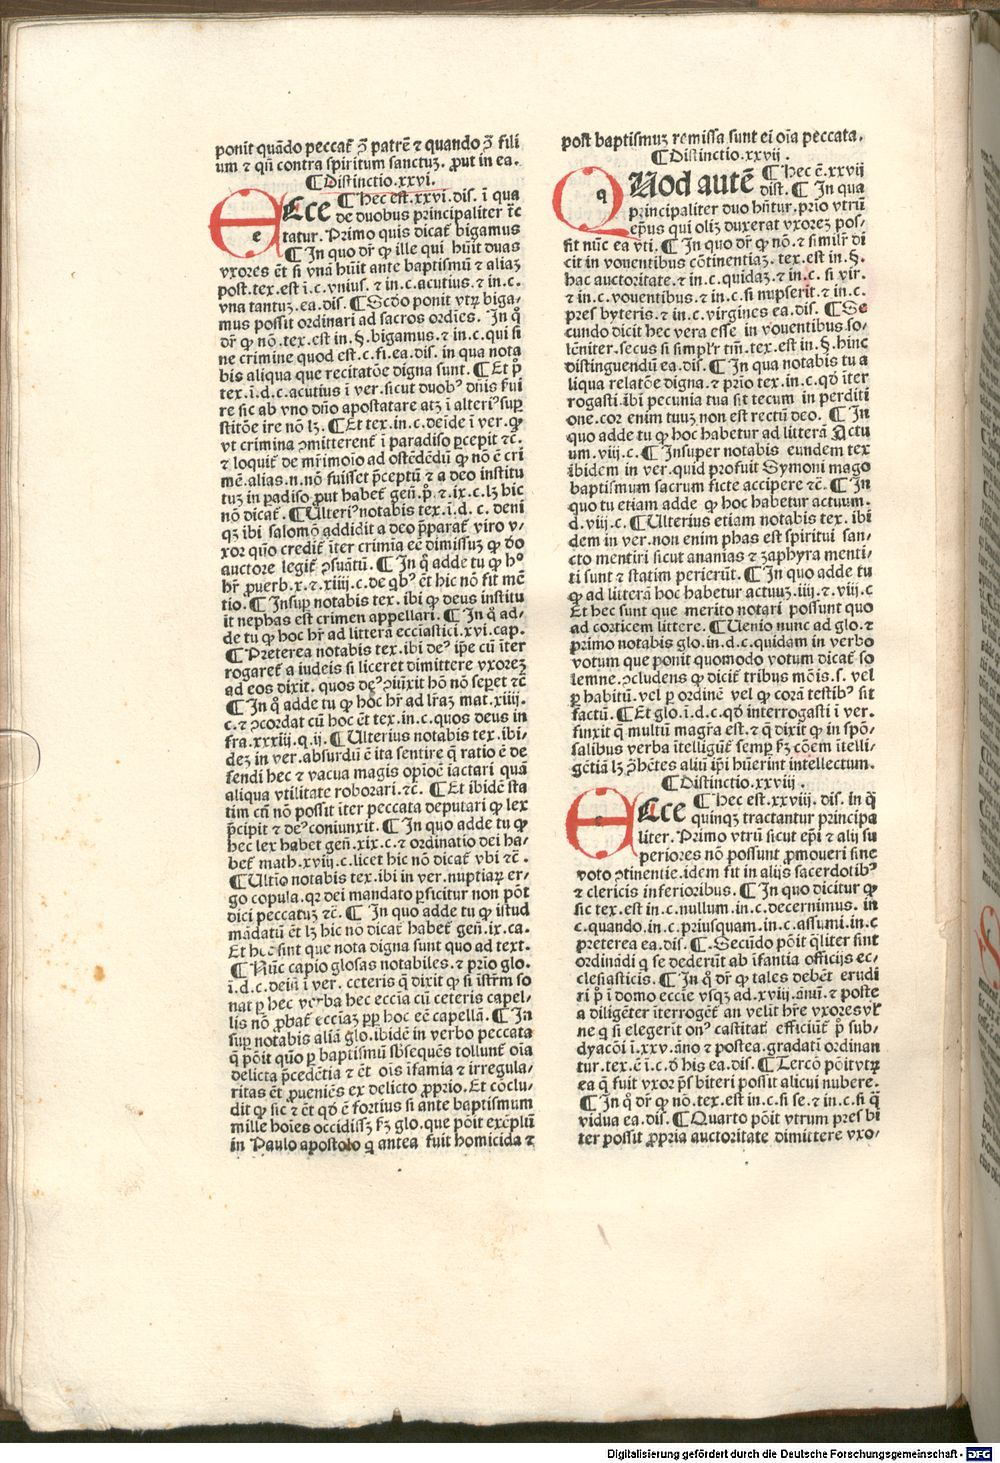 ponit quãdo peccat᷒ ꝯ̃ patrẽ ⁊ quando ꝯ̃ fili
um ⁊ qñ contra spiritum sanctuꝫ. ꝓut in ea.
¶ Distinctio.xxvi.
ECce ¶ Hec est.xxvi.dis. ĩ qua
de duobus principaliter tr̃c
tatur. Primo quis dicat᷒ bigamus
¶ In quo dr̃ ꝙ ille qui hũit duas
vxores et̃ si vnã hũit ante baptismũ ⁊ aliaꝫ
post.tex.est ĩ.c.vnius.⁊ in.c.acutius.⁊ in.c.
vna tantuꝫ.ea.dis. ¶ Scd̃o ponit vtꝝ biga⸗
mus possit ordinari ad sacros ordĩes. In q̊
dr̃ ꝙ nõ.tex.est in.§.bigamus.⁊ in.c.qui si
ne crimine quod est.c.fi.ea.dis. in qua nota
bis aliqua que recitatõe digna sunt. ¶ Et p̊
tex.ĩ.d.c.acutius ĩ ver.sicut duobꝰ dñis fui
re sic ab vno dño apostatare atꝫ ĩ alteriꝰ sup̲
stitõe ire nõ lꝫ. ¶ Et tex.in.c.deĩde ĩ ver.ꝙ
vt crimina ꝯmitterent᷒ ĩ paradiso p̲cepit ⁊c̃.
⁊ loquit᷒ de mr̃imoĩo ad ostẽdẽdũ ꝙ nõ ẽ cri
mẽ.alias.n.nõ fuisset p̃ceptũ ⁊ a deo institu
tuꝫ in p̲adiso ꝓut habet᷒ geñ.p̊.⁊.ix.c.lꝫ hic
nõ dicat᷒. ¶ Ulteriꝰ notabis tex.ĩ.d. c. deni
qꝫ ibi salomõ addidit a deo p̃parat᷒ viro v⸗
xor quõ credit᷒ ĩter crimĩa eẽ dimissuꝫ ꝙ d̃o
auctore legit᷒ ꝯsuãtũ. ¶ In q̊ adde tu ꝙ hº
hr̃ ꝓuerb.x.⁊.xiiii.c.de qbꝰ et̃ hic nõ fit mẽ
tio. ¶ Insup̲ notabis tex.ibi ꝙ deus institu
it nephas est crimen appellari. ¶ In q̊ ad⸗
de tu ꝙ hoc hr̃ ad littera ecciãstici.xvi.cap.
¶ Preterea notabis tex.ibi deꝰ ip̃e cũ ĩter
rogaret᷒ a iudeis si liceret dimittere vxoreꝫ
ad eos dixit. quos deꝰ ꝯiũxit hõ nõ sep̲et ⁊c̃
¶ In q̊ adde tu ꝙ hoc hr̃ ad lr̃aꝫ mat.xiiii.
c.⁊ ꝯcordat cũ hoc et̃ tex.in.c.quos deus in
fra.xxxiii.q.ii. ¶ Ulterius notabis tex.ibi⸗
deꝫ in ver.absurdũ ẽ ita sentire q̃ ratio ẽ de
fendi hec ⁊ vacua magis opĩoẽ iactari quã
aliqua vtilitate roborari.⁊c̃. ¶ Et ibidẽ sta
tim cũ nõ possit ĩter peccata deputari ꝙ lex
p̃cipit ⁊ deꝰ coniunxit. ¶ In quo adde tu ꝙ
hec lex habet geñ.xix.c.⁊ ordinatio dei ha⸗
bet᷒ math.xviij.c.licet hic nõ dicat᷒ vbi ⁊c̃.
¶ Ultĩo notabis tex.ibi in ver.nuptiaꝝ er⸗
go copula.qꝛ dei mandato p̲ficitur non põt
dici peccatuꝫ ⁊c̃. ¶ In quo adde tu ꝙ istud
mãdatũ et̃ lꝫ hic nõ dicat᷒ habet᷒ geñ.ix.ca.
Et hec sint que nota digna sunt quo ad text.
¶ Nũc capio glosas notabiles.⁊ prĩo glo.
ĩ.d.c.deiñ ĩ ver. ceteris q̃ dixit ꝙ si ĩstr̃m so
nat p̲ hec verba hec eccĩa cũ ceteris capel⸗
lis nõ ꝓbat᷒ eccĩaꝫ pp̲ hoc eẽ capellã. ¶ In
sup̲ notabis aliã glo.ibidẽ in verbo peccata
q̃ põit quõ p̲ baptismũ sb̃sequẽs tollunt᷒ oĩa
delicta p̃cedẽtia ⁊ et̃ oĩs ĩfamia ⁊ irregula⸗
ritas et̃ ꝓueniẽs ex delicto ꝓprio. Et cõclu⸗
dit ꝙ sic ⁊ et̃ qd̃ ẽ fortius si ante baptismum
mille hoĩes occidissꝫ ẜꝫ glo.que põit exẽplũ
in Paulo apostolo q̃ antea fuit homicida ⁊
post baptismuꝫ remissa sunt ei oĩa peccata.
¶ Distinctio.xxvij.
QUod autẽ ¶ Hec ẽ.xxvij
dist. ¶ In qua
principaliter duo hñtur.prĩo vtrũ
ep̃us qui oliꝫ duxerat vxoreꝫ pos⸗
sit nũc ea vti. ¶ In quo dr̃ ꝙ nõ.⁊ similr̃ di
cit in vouentibus cõtinentiaꝫ. tex.est in.§.
hac auctoritate.⁊ in.c.quidaꝫ.⁊ in.c. si vir.
⁊ in.c.vouentibus.⁊ in.c.si nupserit.⁊ in.c.
pres byteris.⁊ in.c.virgines ea.dis. ¶ Se
cundo dicit hec vera esse in vouentibus so⸗
lẽniter.secus si simplr̃ tm̃.tex.est in.§.hinc
distinguendũ ea.dis. ¶ In qua notabis tu a
liqua relatõe digna.⁊ prĩo tex.in.c.qd̃ ĩter
rogasti.ibi pecunia tua sit tecum in perditi
one.cor enim tuuꝫ non est rectũ deo. ¶ In
quo adde tu ꝙ hoc habetur ad litterã Actu
um.viij.c. ¶ Insuper notabis eundem tex
ibidem in ver.quid profuit Symoni mago
baptismum sacrum ficte accipere ⁊c̃. ¶ In
quo tu etiam adde ꝙ hoc habetur actuum.
d.viij.c. ¶ Ulterius etiam notabis tex. ibi
dem in ver.non enim phas est spiritui san⸗
cto mentiri sicut ananias ⁊ zaphyra menti⸗
ti sunt ⁊ statim perierũt. ¶ In quo adde tu
ꝙ ad litterã hoc habetur actuuꝫ.iiij.⁊.viij.c
Et hec sunt que merito notari possunt quo
ad corticem littere. ¶ Uenio nunc ad glo.⁊
primo notabis glo.in.d.c.quidam in verbo
votum que ponit quomodo votum dicat᷒ so
lemne.ꝯcludens ꝙ dicit᷒ tribus mõis.s. vel
p̲ habitũ.vel p̲ ordinẽ vel ꝙ corã testibꝰ sit
factũ. ¶ Et glo.ĩ.d.c.qd̃ interrogasti ĩ ver.
finxit q̃ multũ magr̃a est.⁊ q̃ dixit ꝙ in spõ⸗
salibus verba ĩtelligũt᷒ semp̲ ẜꝫ cõem ĩtelli⸗
gẽtiã lꝫ ꝓhẽtes aliũ ip̃i hũerint intellectum.
¶ Distinctio.xxviij.
ECce ¶ Hec est.xxviij. dis. in q̃
quinqꝫ tractantur principa
liter. Primo vtrũ sicut ep̃i ⁊ alij su
periores nõ possunt ꝓmoueri sine
voto ꝯtinentie.idem fit in alijs sacerdotibꝰ
⁊ clericis inferioribus. ¶ In quo dicitur ꝙ
sic tex.est in.c.nullum.in.c.decernimus. in
c.quando.in.c.priusquam.in.c.assumi.in.c
preterea ea.dis. ¶ .Secũdo põit q̃liter sint
ordinãdi q̃ se dederũt ab ĩfantia officijs ec⸗
clesiasticis. ¶ In q̊ dr̃ ꝙ tales debẽt erudi
ri p̊ ĩ domo eccĩe vsqꝫ ad.xviij.ãnũ.⁊ poste
a diligẽter ĩterrogẽt᷒ an velit hr̃e vxores vl̃
ne q̃ si elegerit onꝰ castitat᷒ efficiũt᷒ p̊ sub⸗
dyacõi ĩ.xxv.ãno ⁊ postea.gradatĩ ordinan
tur.tex.ẽ ĩ.c.d̃ his ea.dis. ¶ Tercõ põit vtꝝ
ea q̃ fuit vxor p̃sbiteri possit alicui nubere.
¶ In q̊ dr̃ ꝙ nõ.tex.est in.c.si se.⁊ in.c.si q̃
vidua ea.dis. ¶ Quarto põit vtrum pres bi
ter possit ꝓpria auctoritate dimittere vxo⸗
Digitalisierung gefördert durch die Deutsche Forschungsgemeinschaft - DFG